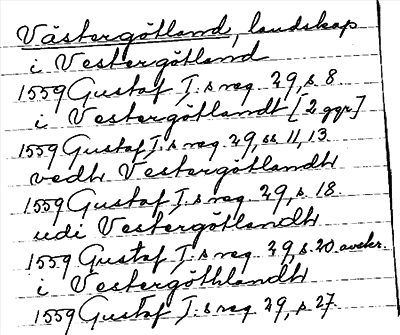 Västergötland, landskap
i Vestergötland
1559 Gustaf I:s reg 29, s. 8
i Vestergötlandt [2 ggr]
1559 Gustaf I:s reg 29, ss 11, 13
vedh Vestergötlandh
1559 Gustaf I:s reg 29, s. 18
udi Vestergötlandh
1559 Gustaf I:s reg 29, s. 20 avskr.
i Vestergöthlandh
1559 Gustaf I:s reg 29, s 27